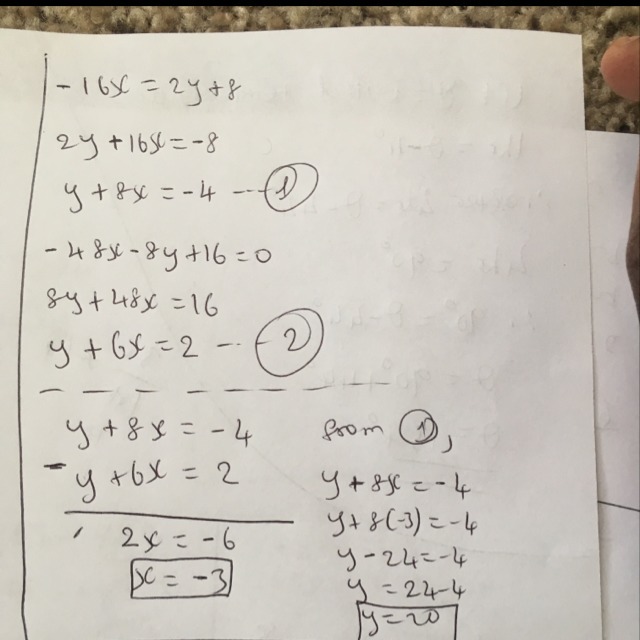 -16x = 2y+8
2y+16x=-8
y + 8x = -4 --- 1
-48x-8y+16=0
8y+48x=16
y + 6x = 2 --- 2
y + 8x = -4
- y + 6x = 2
2x = -6
x = -3
from 1,
y + 8x = -4
y + 8(-3) = -4
y - 24 = -4
y = 24-4
y = 20